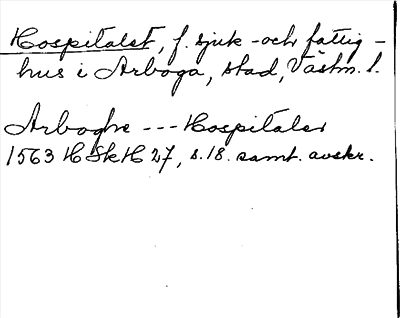 Hospitalet, f. sjuk- och fattig-
hus i Arboga, stad, Västm. l.
Arboghe --- Hospitaler
1563 HSkH 27, s. 18. samt. avskr.